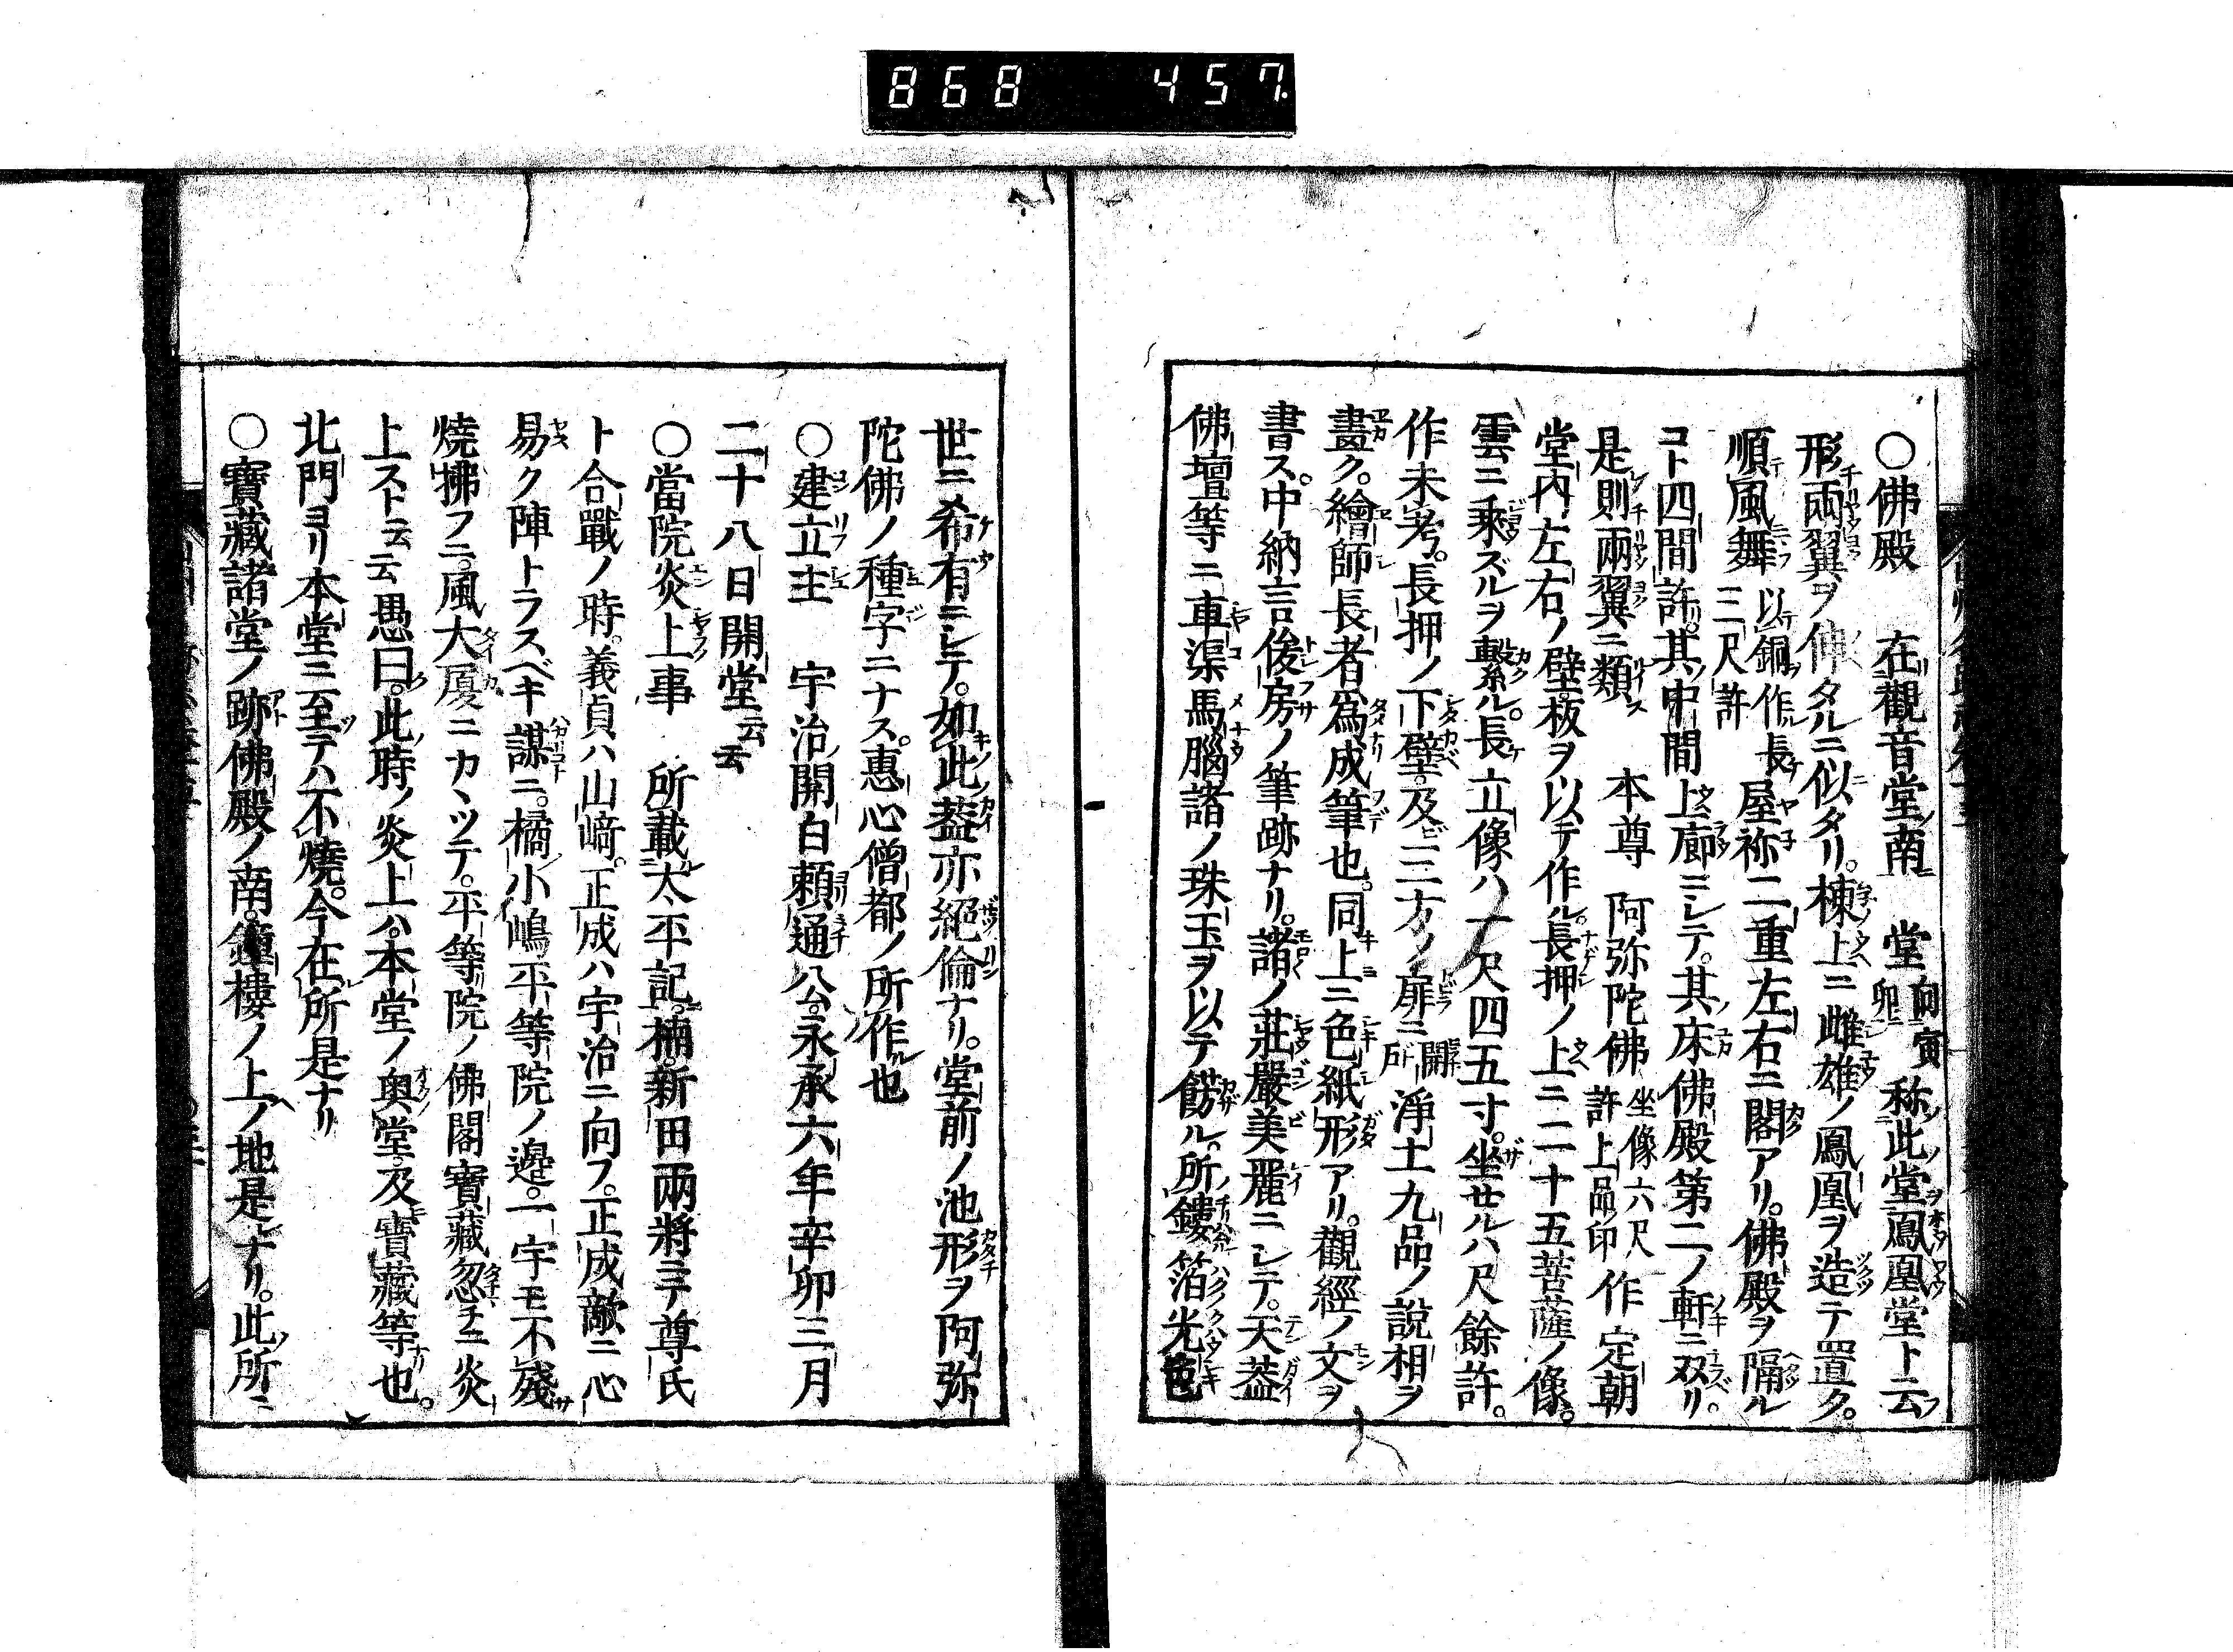 868 457
○佛殿 在觀音堂南 堂向寅卯 称此堂鳳凰堂ト云
形兩翼ヲ伸タルニ似タリ。棟上ニ雌雄ノ鳳凰ヲ造テ置タ。
順風舞 以銅作長三尺許 屋祢二重左右ニ閣アリ。佛殿ヲ隔ル
コト四間許。其中間上廊ニシテ。其床佛殿第二ノ軒ニ双リ。
是則兩翼ニ類ス 本尊 阿弥陀佛 坐像六尺許上品印 作定朝
堂内左右ノ壁。板ヲ以テ作ル。長押ノ上ニ二十五菩薩ノ像。
雲ニ乘ズルヲ繫ル。長立像ハ一尺四五寸。坐セルハ尺餘許。
作未考。長押ノ下壁。及ビ三方ノ扉ニ開戸 淨土九品ノ說相ヲ
畫ク。繪師長者爲成筆也。同上ニ色紙形アリ。觀經ノ文ヲ
書ス。中納言俊房ノ筆跡ナリ。諸ノ莊嚴美麗ニシテ。天葢
佛壇等ニ車渠馬腦諸ノ珠玉ヲ以テ餝ル。所鏤箔光色
世ニ希有ニシテ。如此葢亦絕倫ナリ。堂前ノ池形ヲ阿弥
陀佛ノ種字ニナス。惠心僧都ノ所作也
○建立主 宇治開白賴通公。永承六年辛卯三月
二十八日開堂云云
○當院炎上事 所載太平記。楠新田兩將ニテ尊氏
ト合戰ノ時。義貞ハ山﨑。正成ハ宇治ニ向フ。正成敵ニ心
易ク陣トラスベキ謀ニ。橘小嶋平等院ノ邉。一宇モ不殘
燒拂フニ。風大厦ニカヽツテ。平等院ノ佛閣寶藏忽チニ炎
上スト云云 愚曰。此時ノ炎上ハ。本堂ノ奥堂。及寶藏等也。
北門ヨリ本堂ニ至テハ不燒。今在所是ナリ
○寶藏諸堂ノ跡佛殿ノ南。鐘樓ノ上ノ地是ナリ。此所ニ